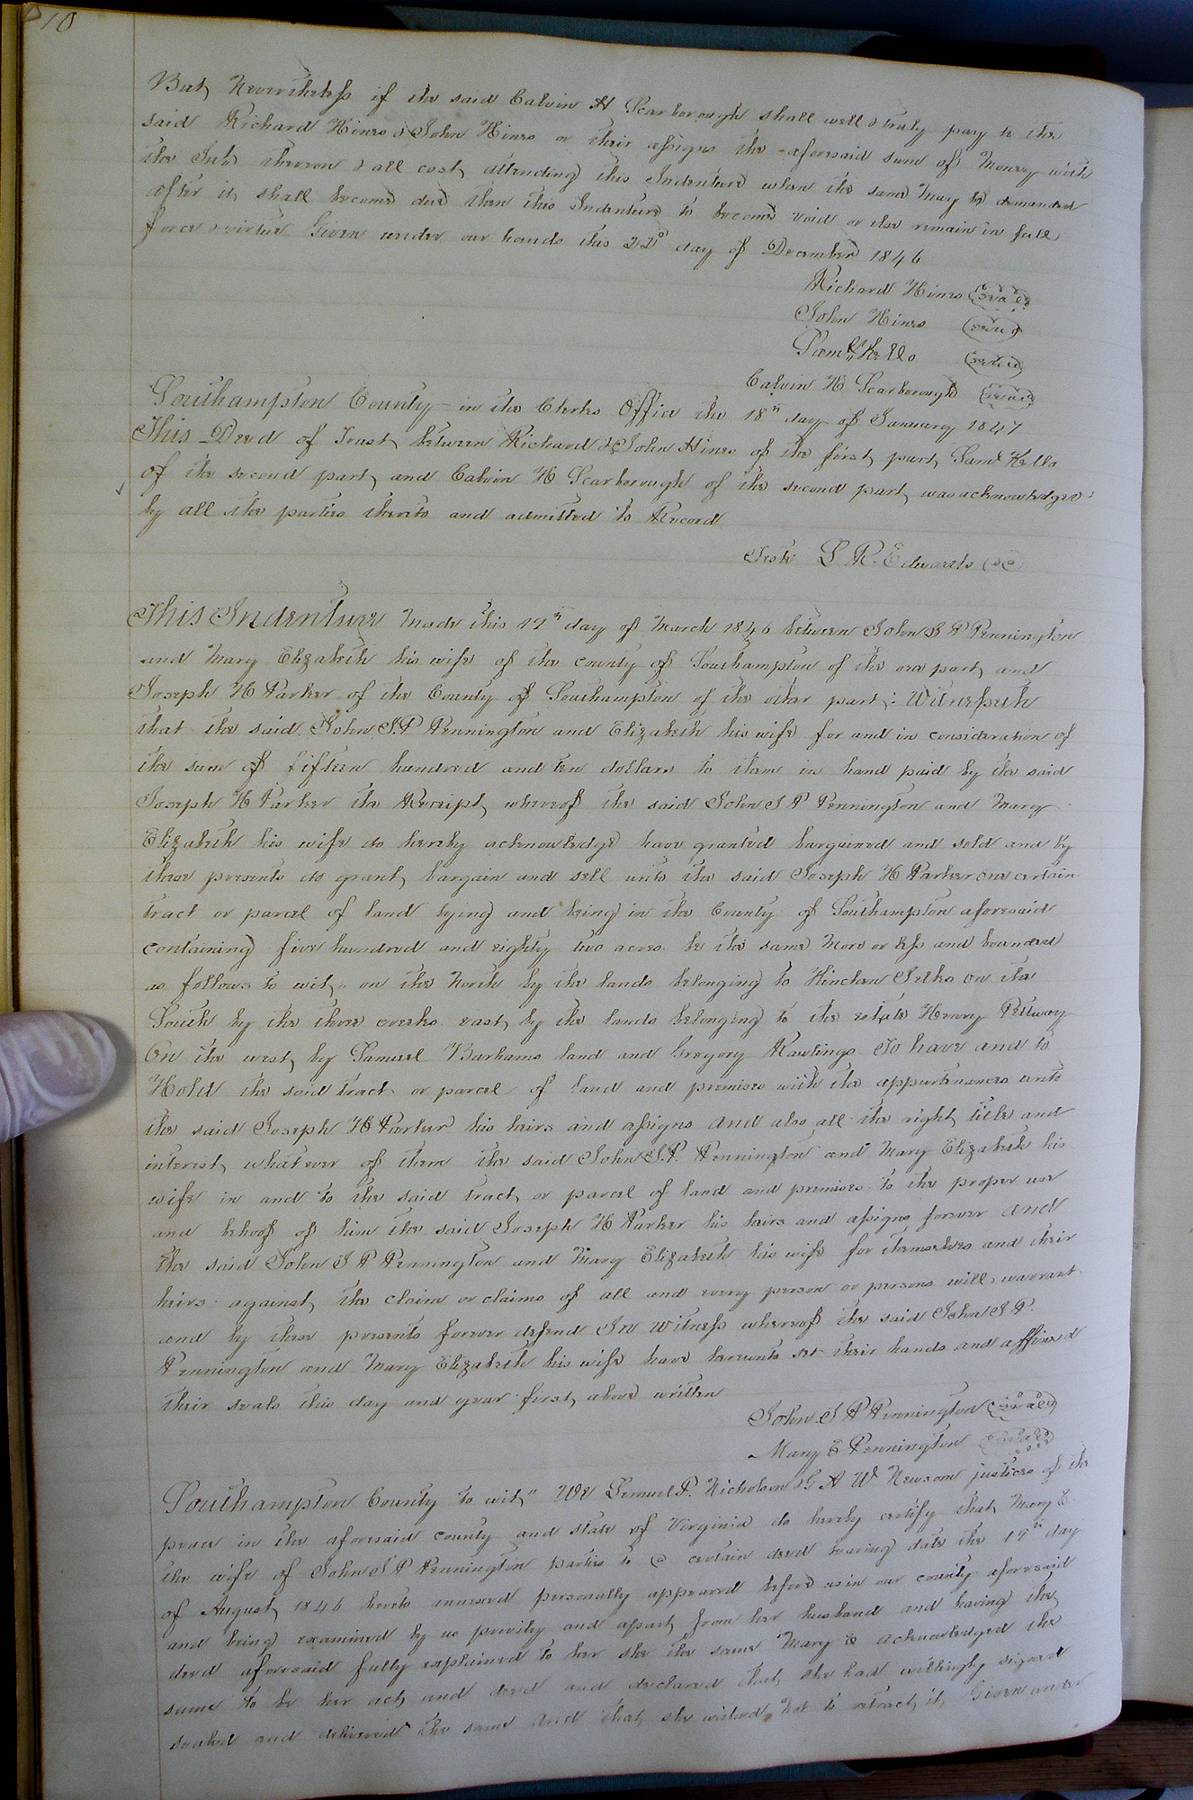 But Nevertheless if the said Calvin H Scarborough shall well & truly pay to the
said Richard Hines & John Hines or their assigns the aforesaid sum of Money with
the Inte thereon & all cost attending this Indenture when the same may be demanded
after it shall become due then this Indenture to become void or else remain in full
force & virtue Given under our hands this 22d day of December 1846
Richard Hines (seal)
John Hines (seal)
Saml Kello (seal)
Calvin H Scarborough (seal)
Southampton County in the Clerks Office the 18th day of January 1847
This Deed of Trust between Richard & John Hines of the first part, Saml Kello
of the second part, and Calvin H Scarborough of the second part, was acknowledged
by all the parties thereto and admitted to Record
Teste L R. Edwards CC
This Indenture Made this 17th day of March 1846 between John S P Pennington
and Mary Elizabeth his wife of the county of Southampton of the one part, and
Joseph H Parker of the County of Southampton of the other part; Witnesseth
that the said John S.P Pennington and Elizabeth his wife for and in consideration of
the sum of fifteen hundred and ten dollars to them in hand paid by the said
Joseph H Parker the Receipt whereof the said John S P Pennington and Mary
Elizabeth his wife do hereby acknowledge have granted bargained and sold and by
these presents do grant, bargain and sell unto the said Joseph H Parker one certain
tract or parcel of land lying and being in the County of Southampton aforesaid
containing five hundred and eighty two acres be the same more or less and bounded
as follows to wit, on the North by the lands belonging to Hinchen on the
South by the three creeks east, by the lands belonging to the estate Henry Pettway
On the west, by Samuel Barhams land and Gregory Rawlings To have and to
Hold the said tract or parcel of land and premises with the appurtenances unto
the said Joseph H Parker his heirs and assigns and also all the right, title and
interest, whatever of them the said John S.P. Pennington and Mary Elizabeth his
wife in and to the said tract, or parcel of land and premises to the proper use
and behoof of him the said Joseph H Parker his heirs and assigns forever and
the said John S P Pennington and Mary Elizabeth his wife for themselves and their
heirs against, the claim or claims of all and every person or persons will warrant
and by these presents forever defend In Witness whereof the said John S P.
Pennington and Mary Elizabeth his wife have hereunto set their hands and affixed
their seals this day and year first, above written
John S P Pennington (seal)
Mary E Pennington (seal)
Southampton County to wit" We Lemuel P. Nicholson & G A W Newsom justices of the
peace in the aforesaid county and state of Virginia do hereby certify that, Mary E
the wife of John S P Pennington parties to a certain deed bearing date the 17th day
of August, 1846 hereto annexed personally appeared before us in our county aforesaid
and being examined by us privily and apart, from her husband and having the
deed aforesaid fully explained to her she the same Mary E acknowledged the
same to be her act, and deed and declared that, she had willingly signed
sealed and delivered the same and that, she wished not to retract it, Given under